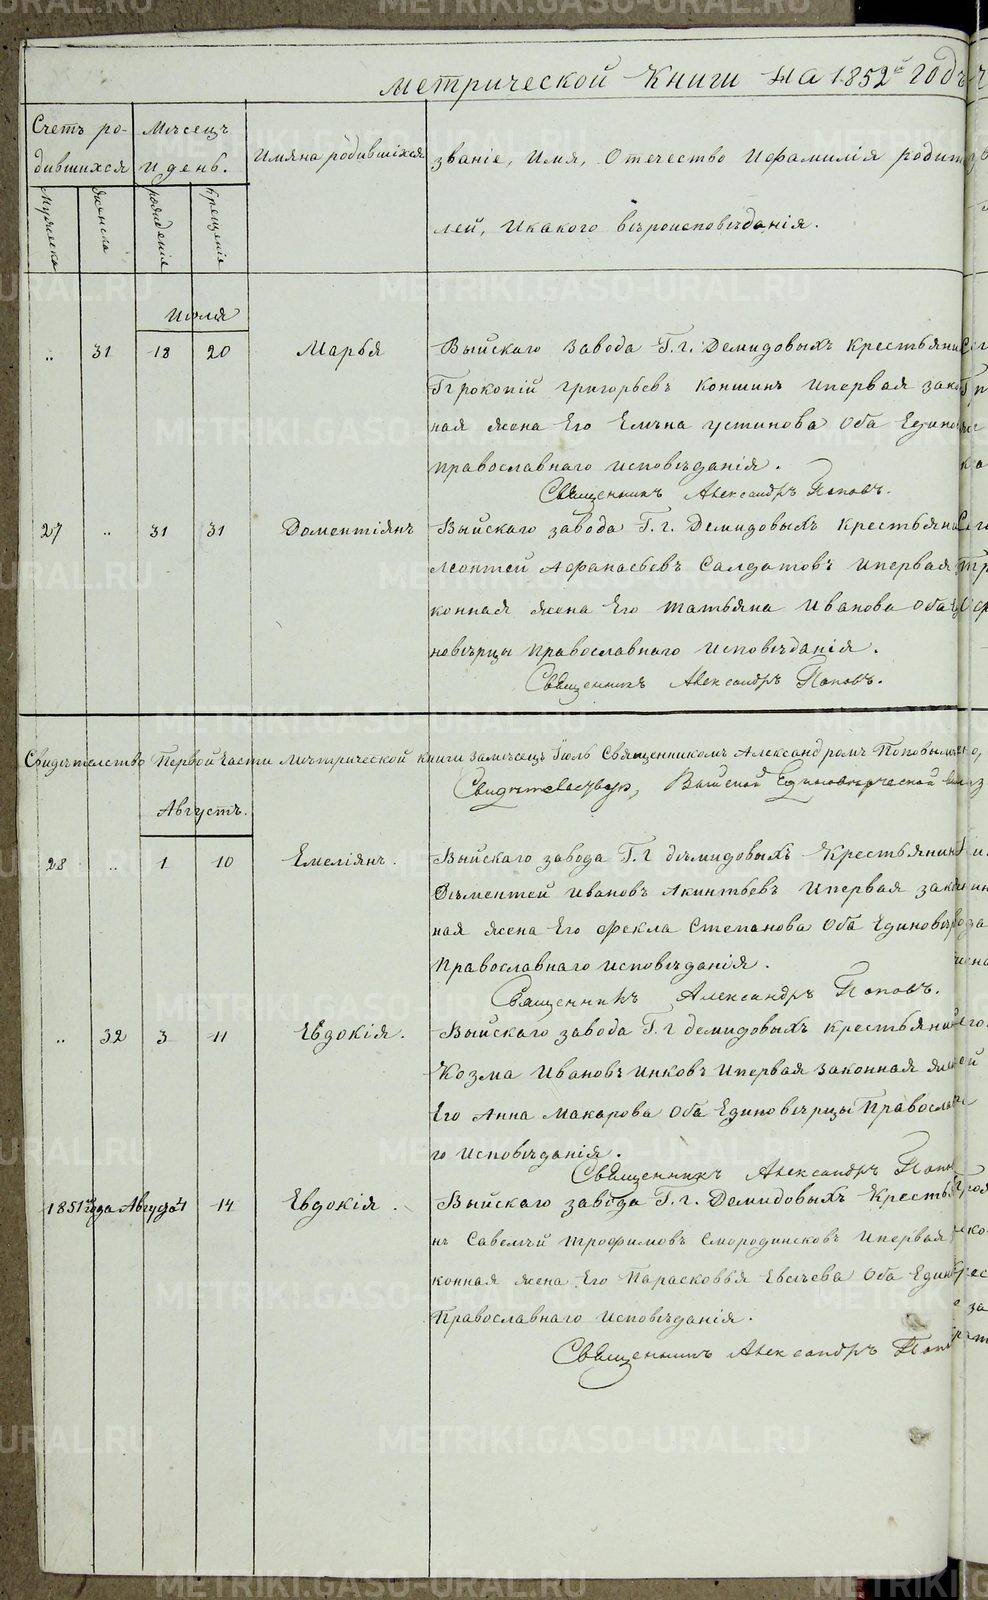 метрической Книги на 1852й годъ
Счетъ ро-
дившихся
Мѣсецъ
и день.
Имяна родившихся
званіе, Имя, Отечество Ифамилія родит
лей, Икакого вѣроисповѣданія.
Мужеска
Женска
рожденія
крещенія
Июля
„ 31 18 20 Марья
Выйскаго завода Г. г. Демидовыхъ крестьяни
Прокопій григорьевъ коншинъ Ипервая зако
ная жена Его Елѣна устинова Оба Едино
православнаго исповѣданія.
Священникъ Александръ Поповъ.
27 „ 31 31 Доментіянъ
Выйскаго завода Г. г. Демидовыхъ Крестьяни
Леонтей Афанасьевъ Салдатовъ Ипервая
конная жена Его татьяна Иванова Оба
новѣрцы православнаго исповѣданія.
Священникъ Александръ Поповъ.
Свидѣтелство Первой части Метрической книги замѣсецъ Іюль Священникомъ Александромъ Поповымъ
Выйской Единовѣрческой
Августъ.
28 „ 1 10 Емеліянъ.
Выйскаго завода Г. г дѣмидовыхъ Крестьянин
Дѣментей Ивановъ Акинтьевъ Ипервая зако
ная жена Его фекла Степанова Оба Единовѣр
Православнаго исповѣданія.
Священникъ Александръ Поповъ.
„ 32 3 11 Евдокія.
Выйскаго завода Г. г демидовыхъ крестьяни
Козма Ивановъ Инковъ Ипервая законная жена
Его Анна Макарова Оба Единовѣрцы Православ
го исповѣданія.
Священникъ Александръ Попо
1851 года Августа 1 14 Евдокія.
Выйскаго завода Г. г. Демидовыхъ Кресть
нъ Савелѣй трофимовъ Смородинсковъ Ипервая
конная жена Его Парасковья Евсѣева Оба Един
Православнаго исповѣданія.
Священникъ Александръ Попо
METRIKI.GASO-URAL.RU